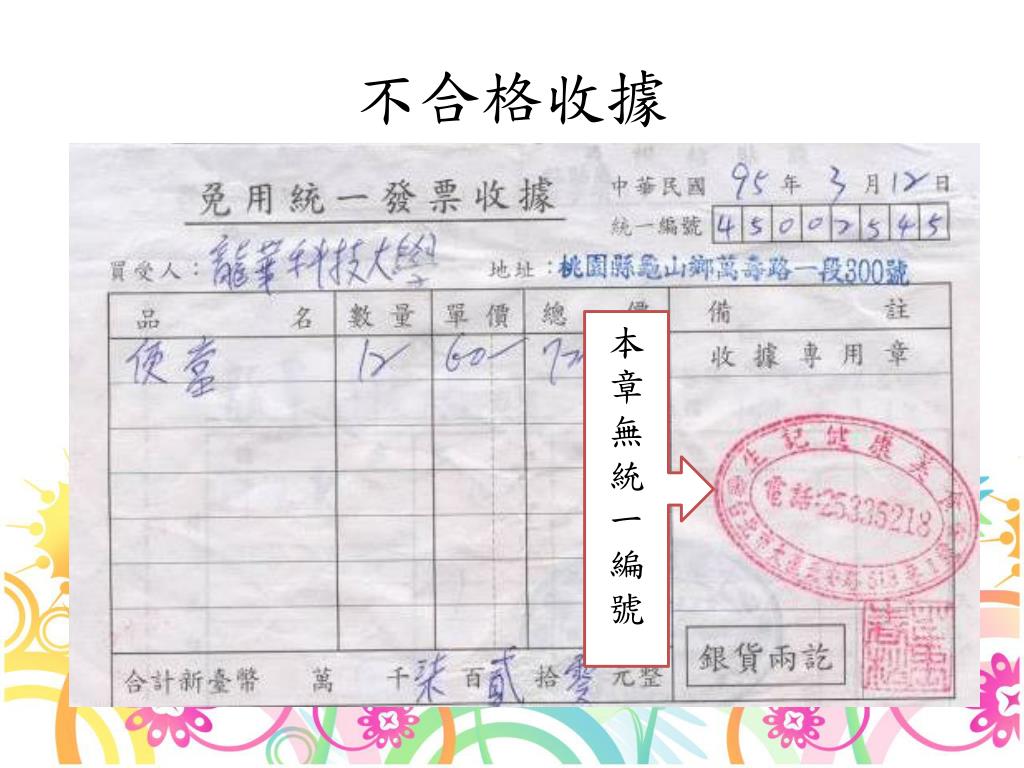 不合格收據
免用統一發票收據
中華民國 95 年 3 月 12 日
統一編號 45002545
買受人：龍華科技大學
地址：桃園縣龜山鄉萬壽路一段300號
品名 數量 單價 總價 備註
便當 12 60
收據專用章
本章無統一編號
電話:25335218
合計新臺幣 萬 千 柒 百 貳 拾 零 元整
銀貨兩訖